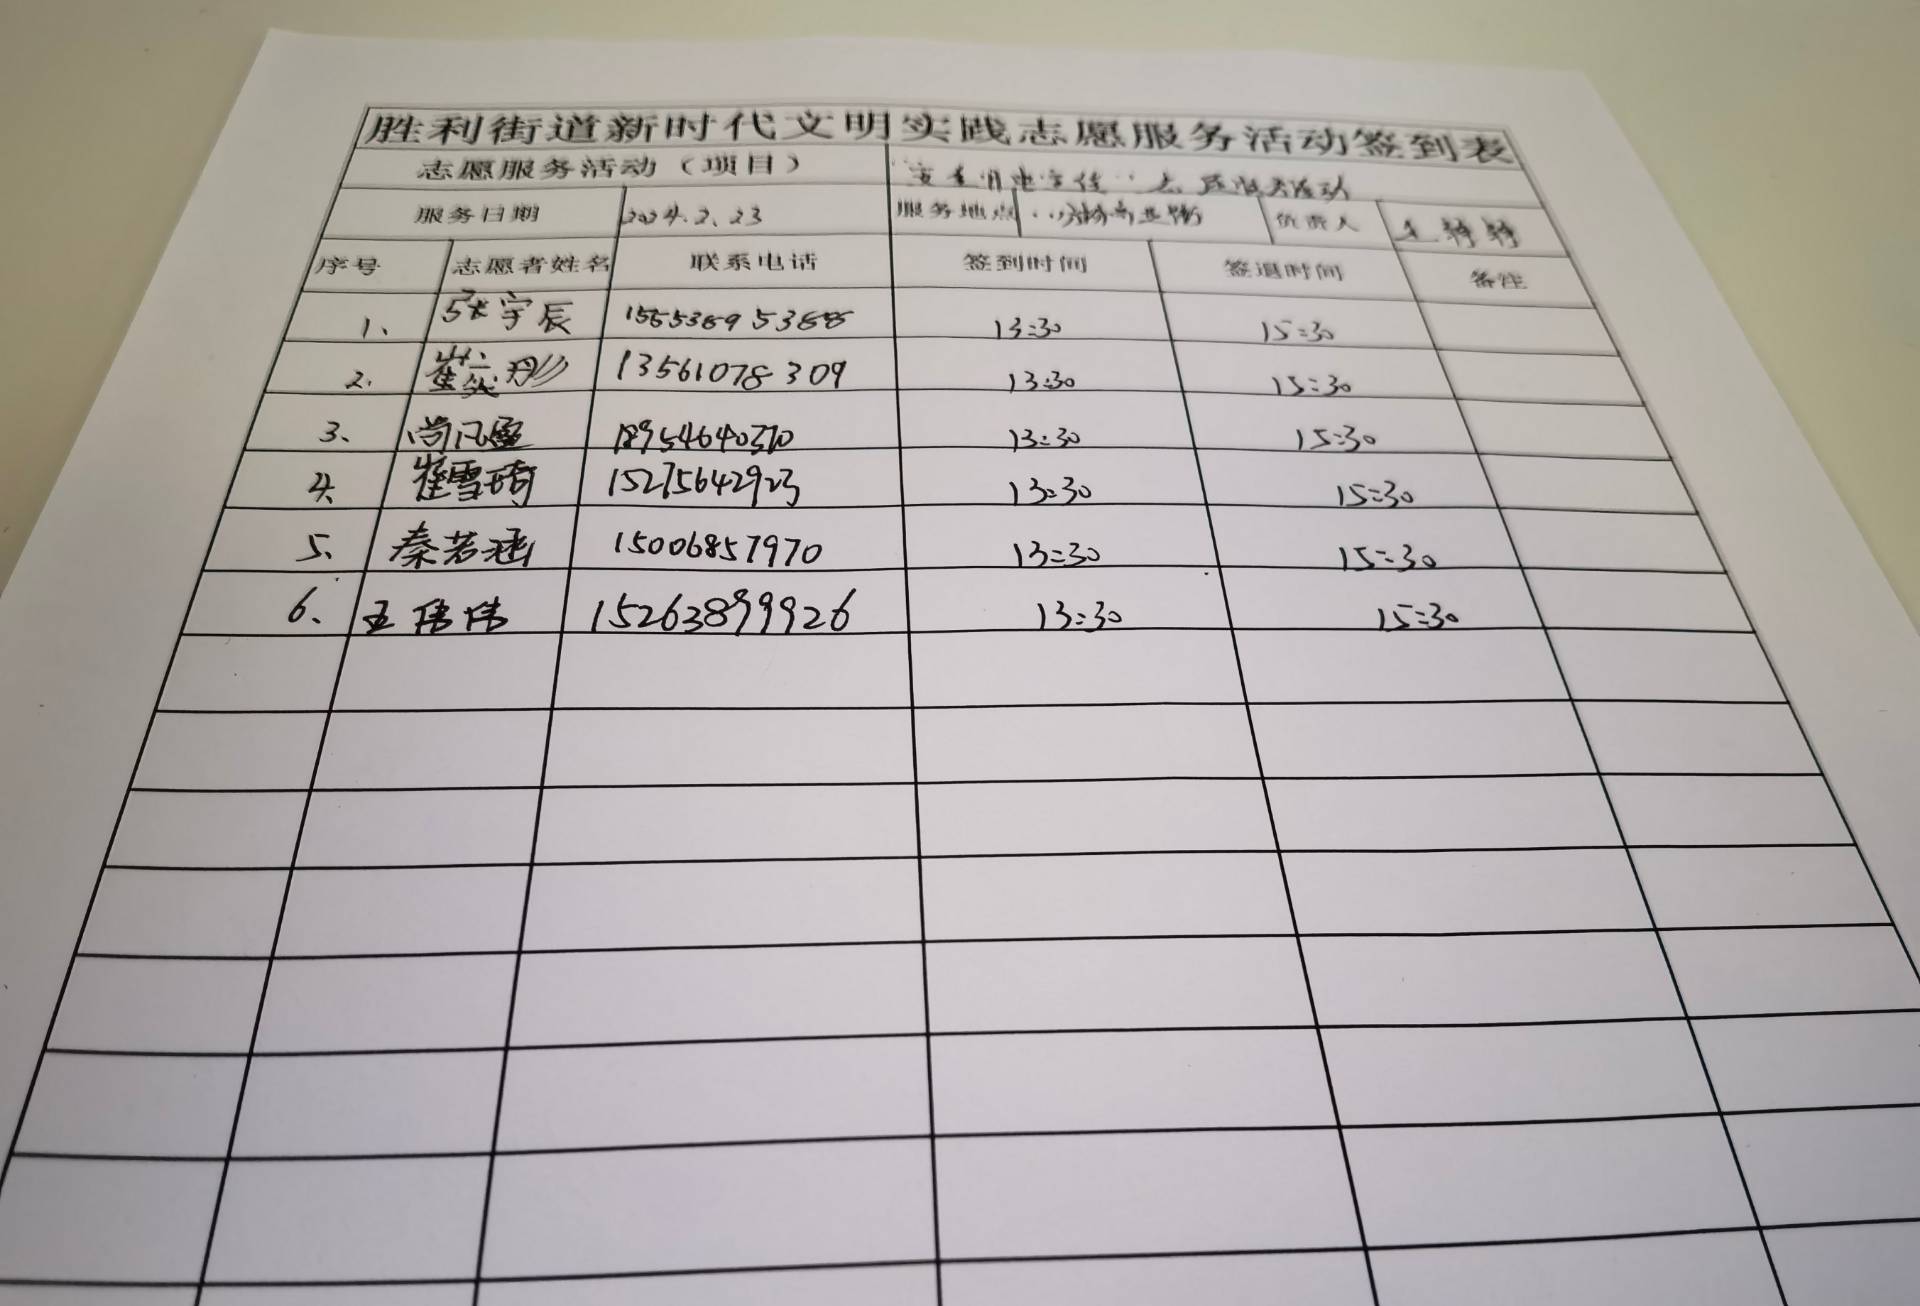 胜利街道新时代文明实践志愿服务活动签到表
志愿服务活动（项目） 安全用电宣传 志愿服务活动
服务日期 2024.2.23 服务地点 商业街 负责人
序号 志愿者姓名 联系电话 签到时间 签退时间 备注
1、 张宇辰 15553895388 13:30 15:30
2. 13561078309 13:30 15:30
3、 尚凡盈 18954640370 13:30 15:30
4、 崔雪琦 15275642923 13:30 15:30
5、 秦若涵 15006857970 13:30 15:30
6、 王伟伟 15263899926 13:30 15:30